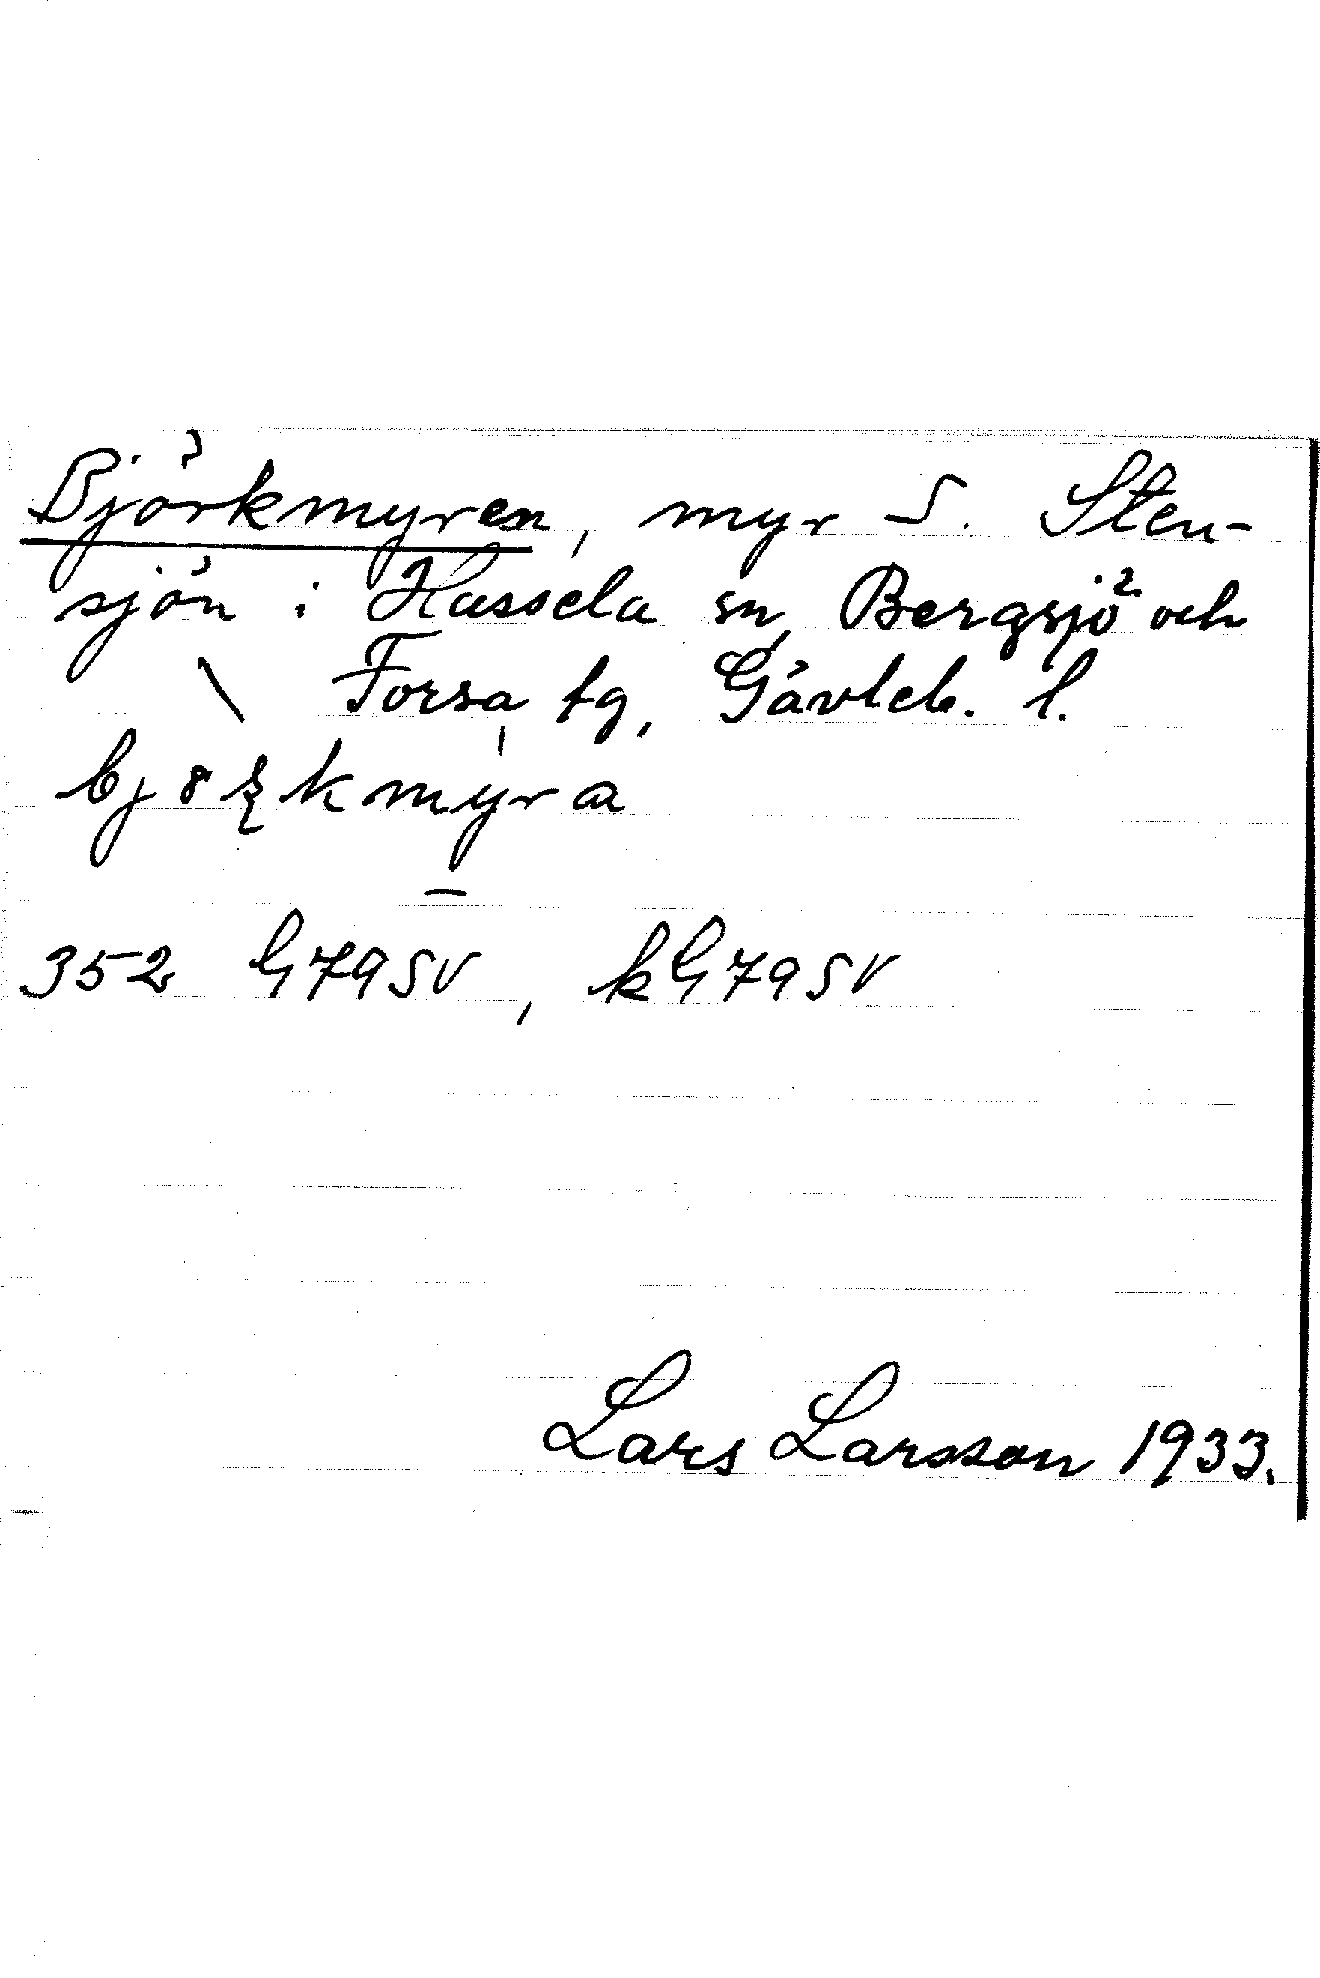 Björkmyren, myr S. Sten-
sjön i Hassela sn, Bergsjö och
Forsa tg, Gävleb. l.
352 G79SV, kG79SV
Lars Larsson 1933.